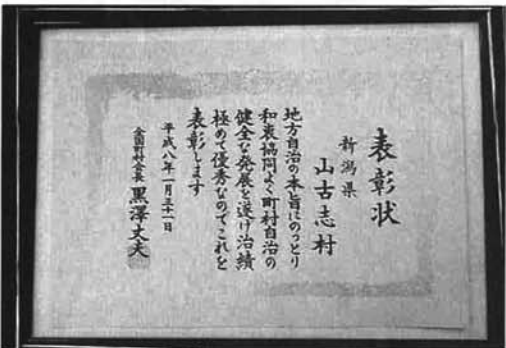 表彰状
新潟県
山古志村
地方自治の本旨にのっとり
和衷協同よく町村自治の
健全な発展を遂げ治績
極めて優秀なのでこれを
表彰します
平成八年一月三十一日
全国町村会長 黒澤丈夫